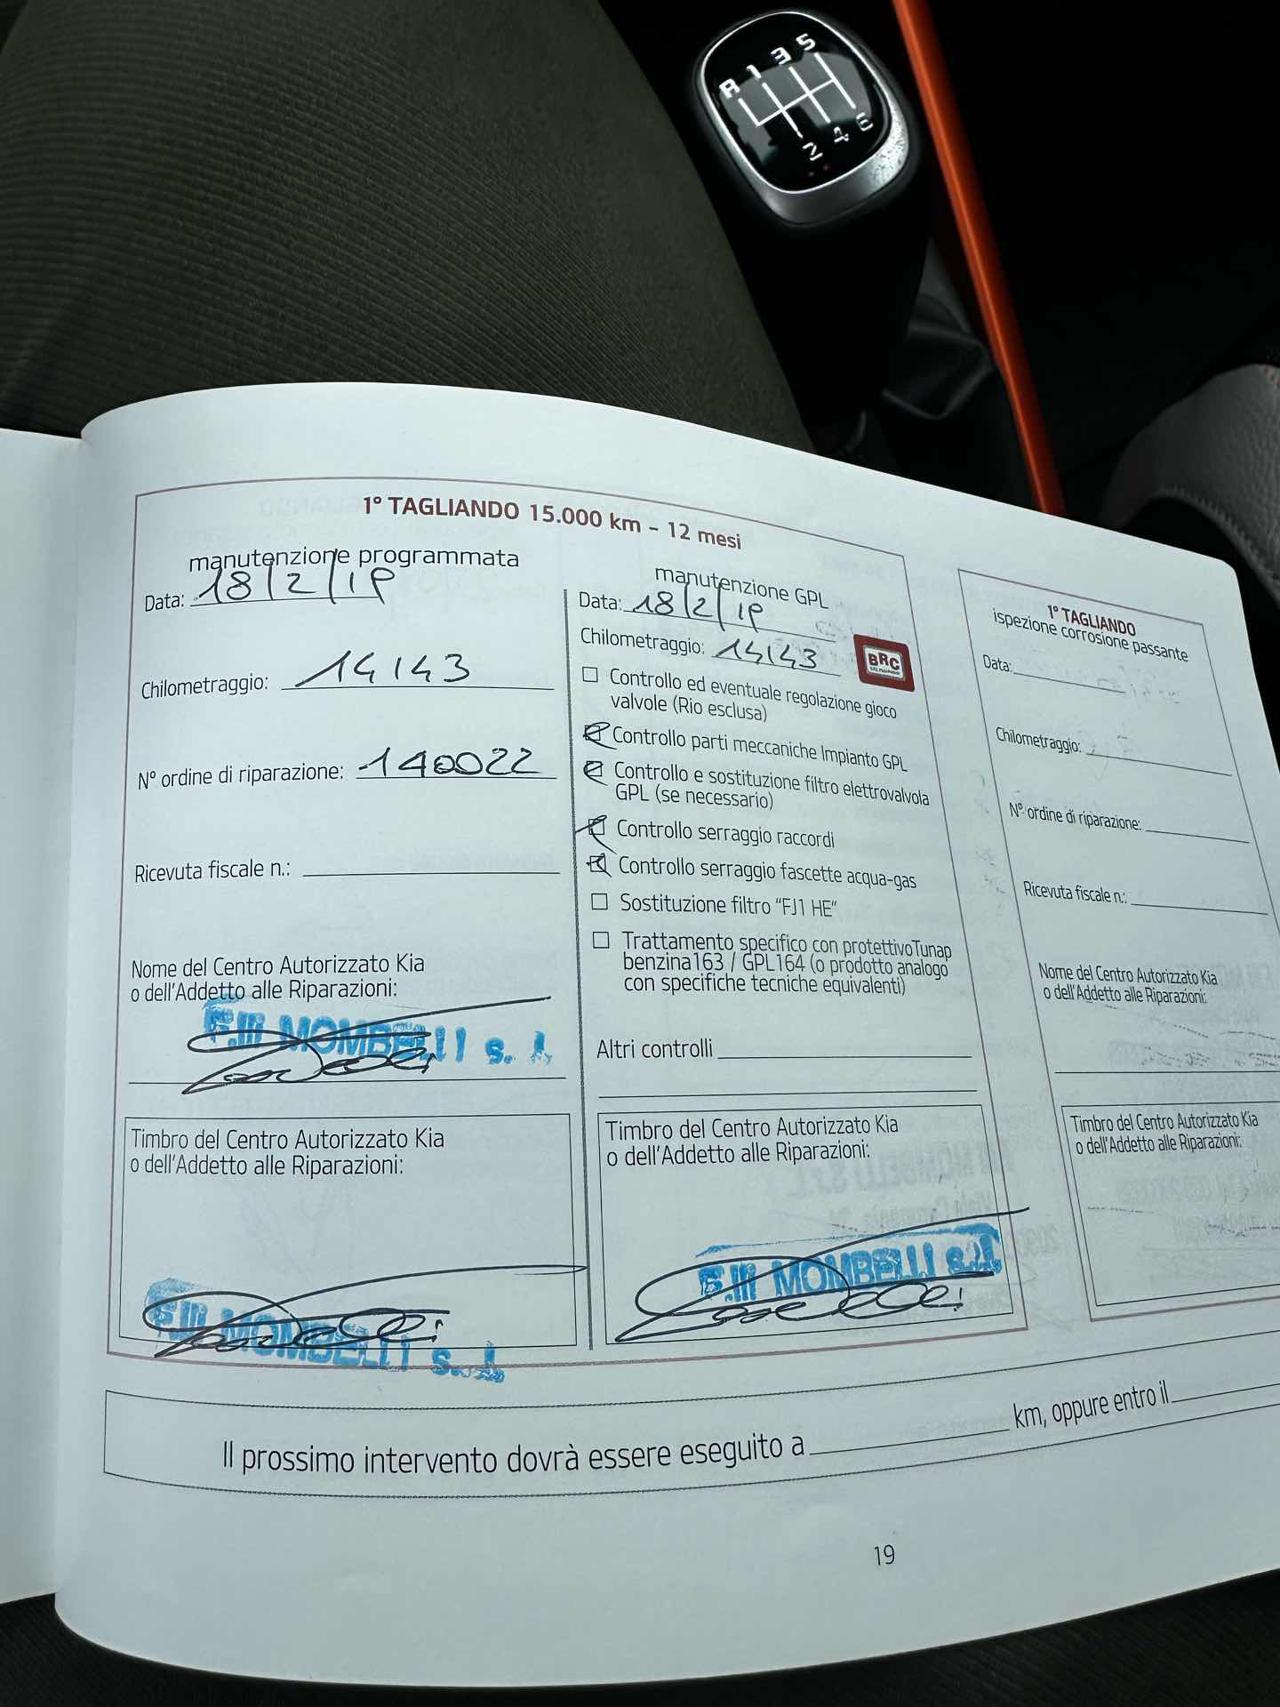 R 1 3 5
2 4 6
1° TAGLIANDO 15.000 km – 12 mesi
manutenzione programmata
Data: 18/2/19
Chilometraggio: 14143
N° ordine di riparazione: 140022
Ricevuta fiscale n.:
Nome del Centro Autorizzato Kia
o dell'Addetto alle Riparazioni:
F.lli MOMBELLI s. l.
Timbro del Centro Autorizzato Kia
o dell'Addetto alle Riparazioni:
F.lli MOMBELLI s. l.
manutenzione GPL
Data: 18/2/19
Chilometraggio: 14143
BRC
Controllo ed eventuale regolazione gioco
valvole (Rio esclusa)
Controllo parti meccaniche Impianto GPL
Controllo e sostituzione filtro elettrovalvola
GPL (se necessario)
Controllo serraggio raccordi
Controllo serraggio fascette acqua-gas
Sostituzione filtro “FJ1 HE”
Trattamento specifico con protettivoTunap
benzina163 / GPL164 (o prodotto analogo
con specifiche tecniche equivalenti)
Altri controlli
Timbro del Centro Autorizzato Kia
o dell'Addetto alle Riparazioni:
F.lli MOMBELLI s.r.l.
1° TAGLIANDO
ispezione corrosione passante
Data:
Chilometraggio:
N° ordine di riparazione:
Ricevuta fiscale n.:
Nome del Centro Autorizzato Kia
o dell'Addetto alle Riparazioni:
Timbro del Centro Autorizzato Kia
o dell'Addetto alle Riparazioni:
Il prossimo intervento dovrà essere eseguito a km, oppure entro il
19